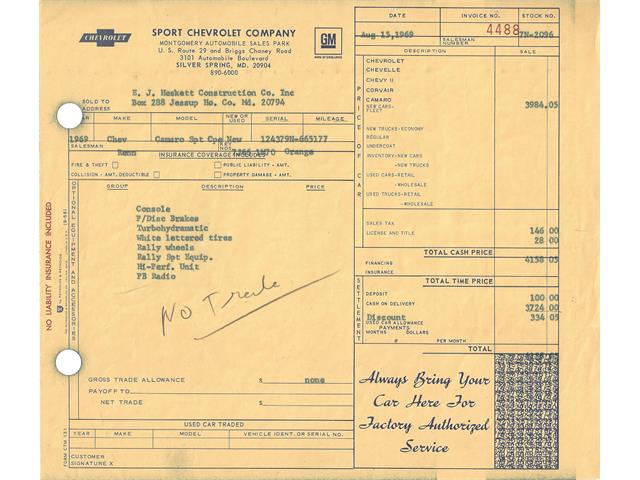 CHEVROLET
SPORT CHEVROLET COMPANY
MONTGOMERY AUTOMOBILE SALES PARK
U. S. Route 29 and Briggs Chaney Road
3101 Automobile Boulevard
SILVER SPRING, MD. 20904
890-6000
GM
MARK OF EXCELLENCE
DATE INVOICE NO. STOCK NO.
Aug 15,1969 4488 7N-2096
SALESMAN NUMBER
DESCRIPTION SALE
SOLD TO
ADDRESS
E. J. Heskett Construction Co. Inc
Box 288 Jessup Ho. Co. Md. 20794
YEAR MAKE MODEL NEW OR USED SERIAL MILEAGE
1969 Chev Camaro Spt Cpe New 124379N-665177
SALESMAN KEY NOS.
Renn Orange
INSURANCE COVERAGE INCLUDES
FIRE & THEFT PUBLIC LIABILITY - AMT.
COLLISION - AMT. DEDUCTIBLE PROPERTY DAMAGE - AMT.
GROUP DESCRIPTION PRICE
NO LIABILITY INSURANCE INCLUDED
OPTIONAL EQUIPMENT AND ACCESSORIES
Console
P/Disc Brakes
Turbohydramatic
White lettered tires
Rally wheels
Rally Spt Equip.
Hi-Perf. Unit
PB Radio
No Trade
GROSS TRADE ALLOWANCE $ none
PAYOFF TO $
NET TRADE $
USED CAR TRADED
YEAR MAKE MODEL BODY VEHICLE IDENT. OR SERIAL NO.
CUSTOMER
SIGNATURE X
FORM CTM 131
PRICE OF CAR
CHEVROLET
CHEVELLE
CHEVY II
CORVAIR
CAMARO 3984.05
NEW CARS-
FLEET
NEW TRUCKS-ECONOMY
REGULAR
UNDERCOAT
INVENTORY-NEW CARS
-NEW TRUCKS
USED CARS-RETAIL
-WHOLESALE
USED TRUCKS-RETAIL
-WHOLESALE
SALES TAX 146 00
LICENSE AND TITLE 28 00
TOTAL CASH PRICE 4158 05
FINANCING
INSURANCE
TOTAL TIME PRICE
SETTLEMENT
DEPOSIT 100 00
CASH ON DELIVERY 3724 00
Discount 334 05
USED CAR ALLOWANCE
PAYMENTS
MONTHS DOLLARS
# PER MONTH
TOTAL
Always Bring Your
Car Here For
Factory Authorized
Service